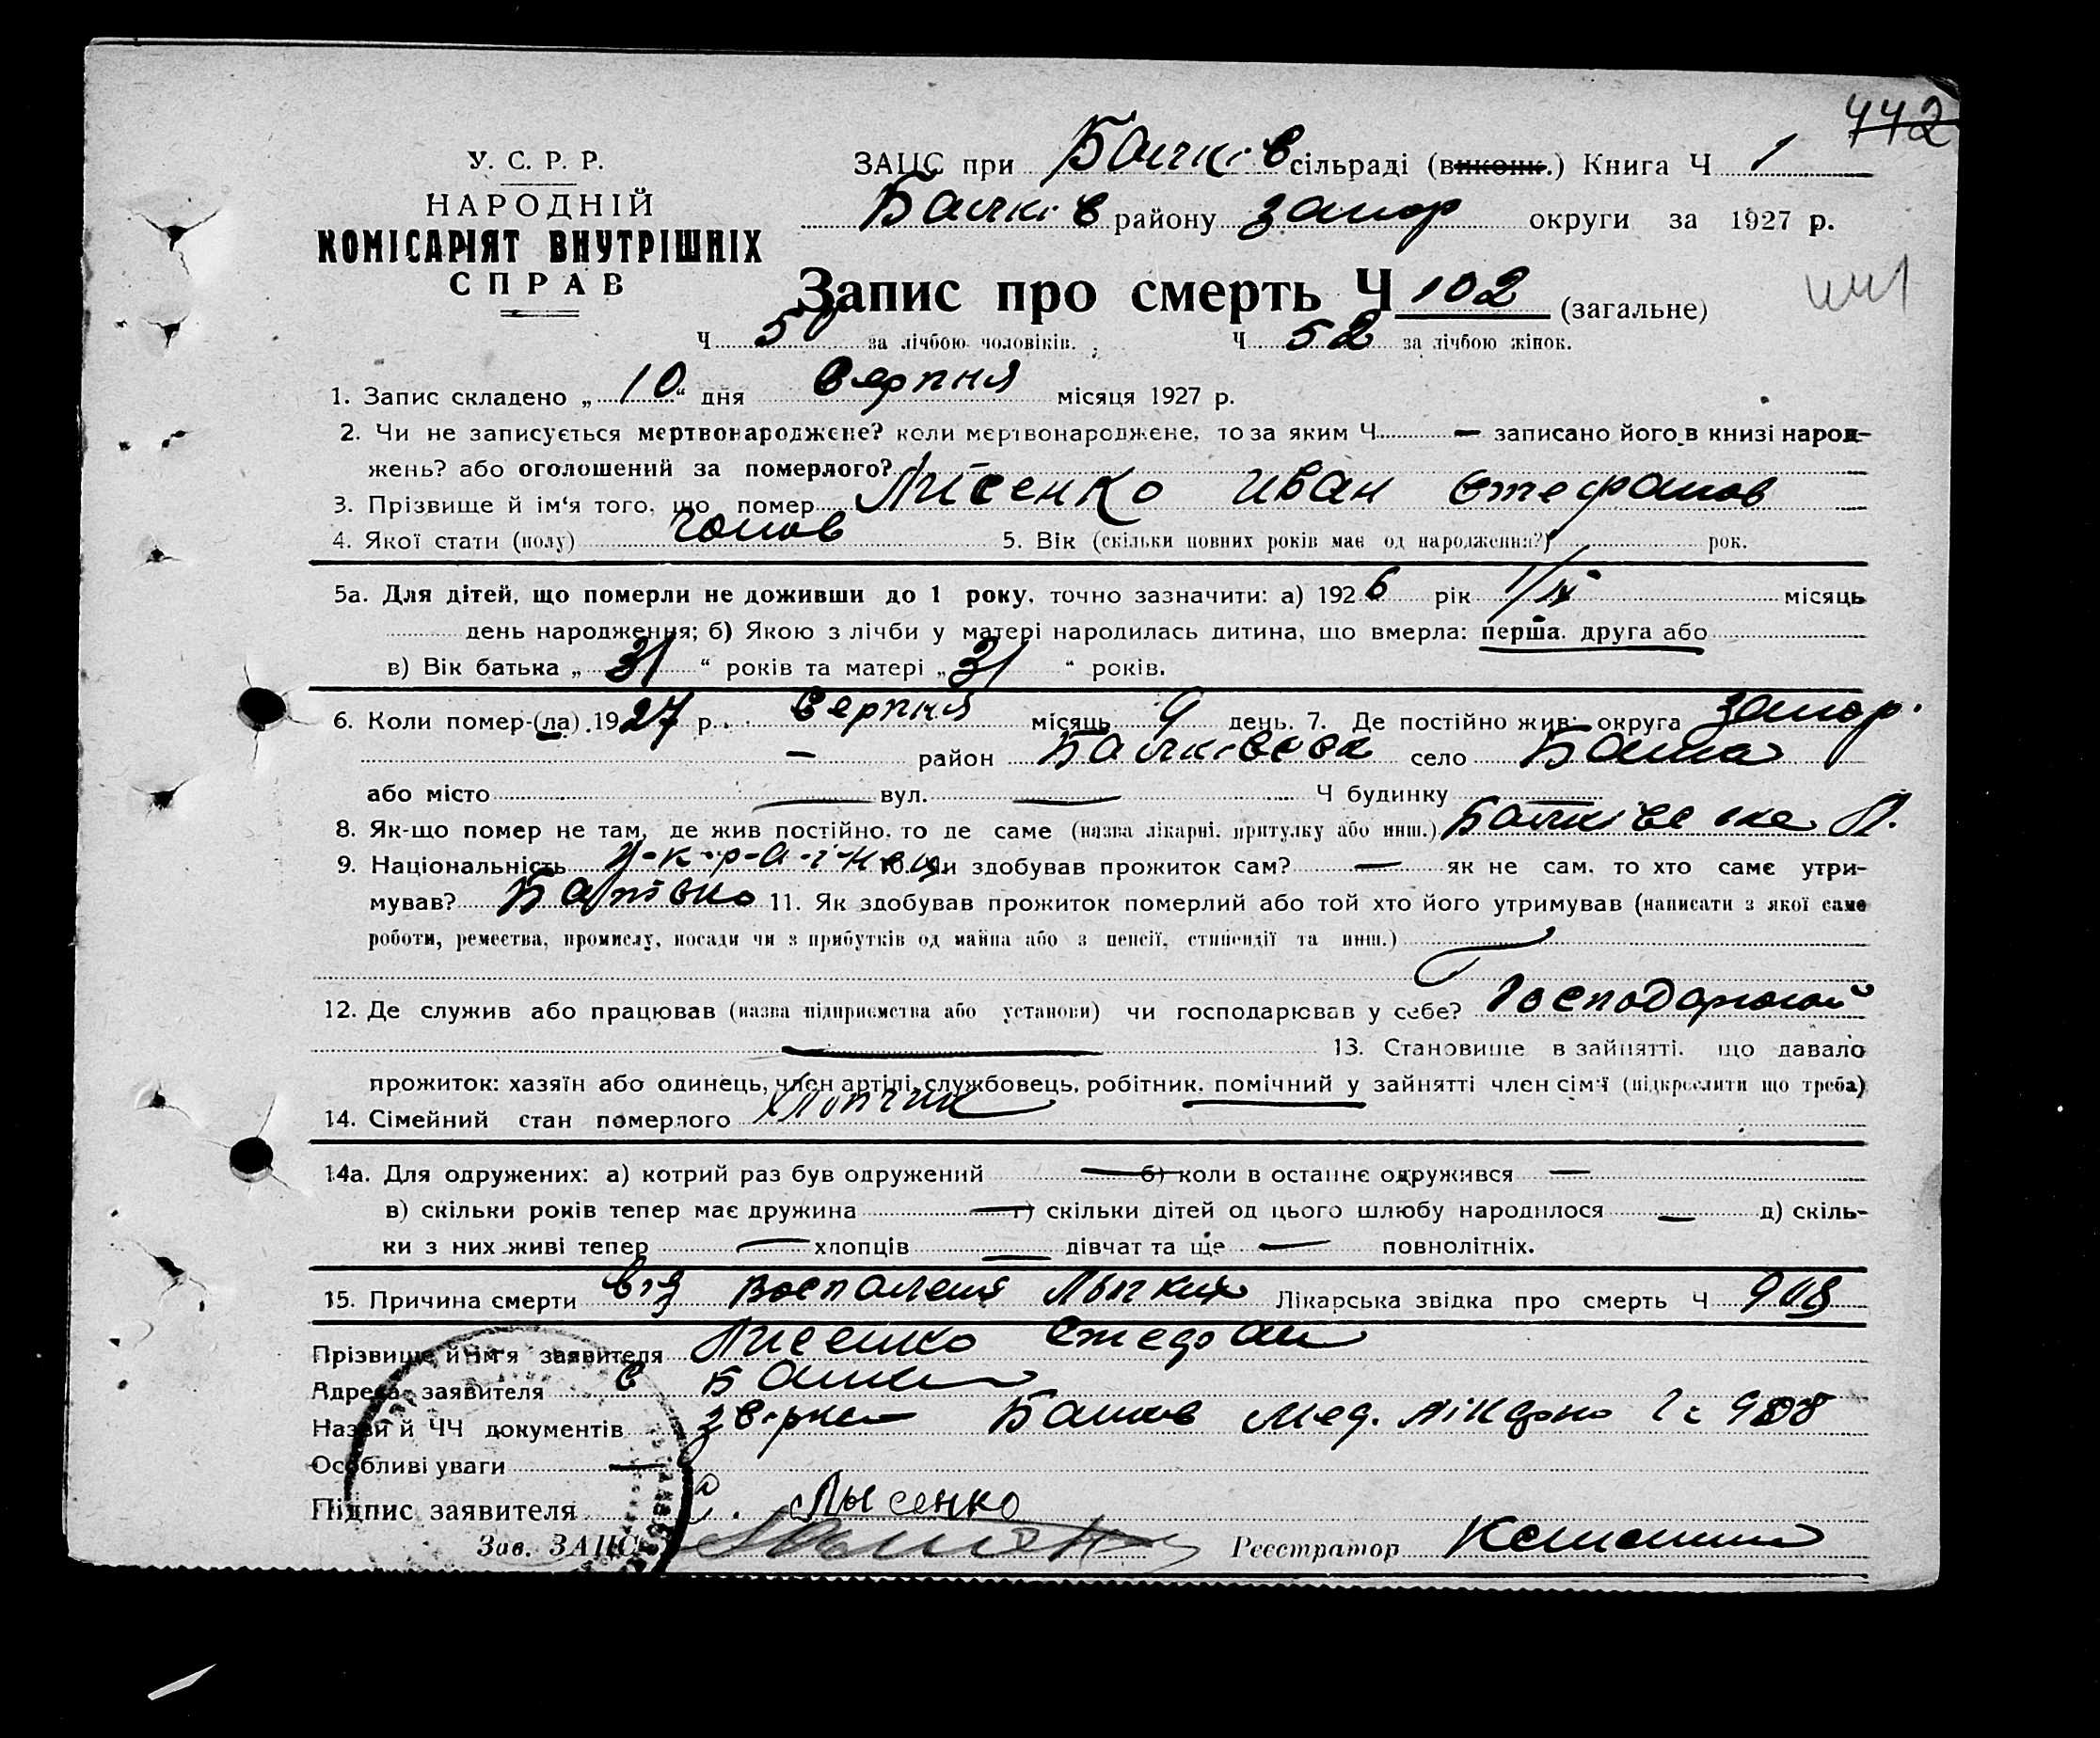 442
У. С. Р. Р.
НАРОДНІЙ
КОМІСАРІЯТ ВНУТРІШНІХ
СПРАВ
ЗАЦС при Балків сільраді (виконк.) Книга Ч 1
Балків району Запор округи за 1927 р.
Запис про смерть Ч 102 (загальне)
Ч 50 за лічбою чоловіків. Ч 52 за лічбою жінок.
1. Запис складено „ 10 “ дня Серпня місяця 1927 р.
2. Чи не записується мертвонароджене? коли мертвонароджене, то за яким Ч. — записано його в книзі народ-
жень? або оголошений за померлого?
3. Прізвище й ім‘я того, що помер Лисенко Иван Стефанов
4. Якої стати (полу) Чолов 5. Вік (скільки повних років має од народження?) рок.
5а. Для дітей, що померли не доживши до 1 року, точно зазначити: а) 1926 рік 1/IX місяць
день народження; б) Якою з лічби у матері народилась дитина, що вмерла: перша. друга або
в) Вік батька „ 31 “ років та матері „ 31 “ років.
6. Коли помер-(ла) 1927 р. Серпня місяць 9 день. 7. Де постійно жив: округа Запор.
— район Балківсск село Балка
або місто — вул. — Ч будинку —
8. Як-що помер не там, де жив постійно, то де саме (назва лікарні, притулку або инш.) Балківске Л.
9. Національність У-к-р-а-ї-нец 10. Чи здобував прожиток сам? — як не сам, то хто саме утри-
мував? Батько 11. Як здобував прожиток померлий або той хто його утримував (написати з якої саме
роботи, ремества, промислу, посади чи з прибутків од майна або з пенсії, стипендії та инш.)
12. Де служив або працював (назва підприємства або установи) чи господарював у себе?
— 13. Становище в зайнятті, що давало
прожиток: хазяїн або одинець, член артілі, службовець, робітник, помічний у зайнятті член сім‘ї (підкреслити що треба)
14. Сімейний стан померлого Хлопчик
14а. Для одружених: а) котрий раз був одружений — б) коли в останнє одружився —
в) скільки років тепер має дружина — г) скільки дітей од цього шлюбу народилося — д) скіль-
ки з них живі тепер — хлопців — дівчат та ще — повнолітніх.
15. Причина смерти від Воспаления Лыгких Лікарська звідка про смерть Ч 908
Прізвище й ім‘я заявителя Лисенко Стефан
Адреса заявителя с Балки
Назви й ЧЧ документів Балков Мед. 908
Особливі уваги —
Підпис заявителя С. Лысенко
Зав. ЗАЦС Реєстратор